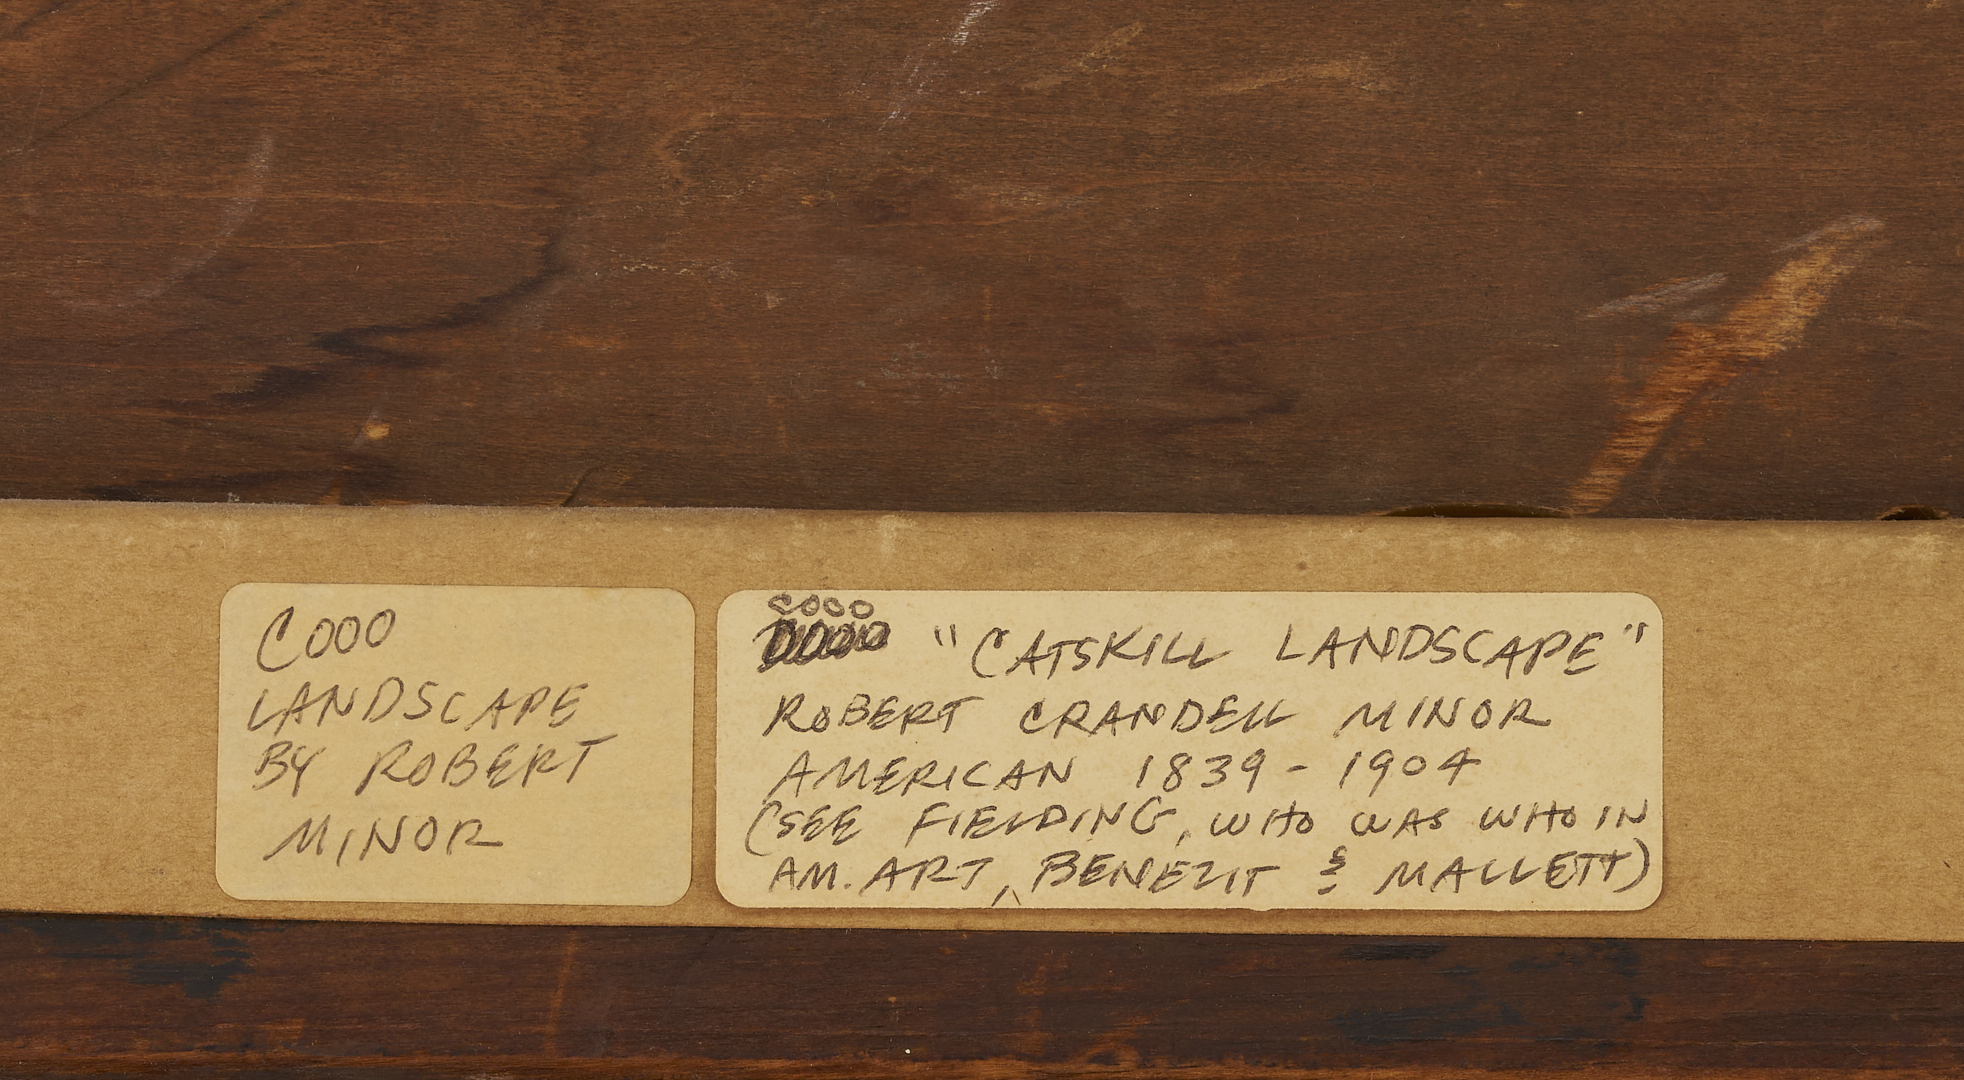 COOO
LANDSCAPE
BY ROBERT
MINOR
COOO
"CATSKILL LANDSCAPE"
ROBERT CRANDELL MINOR
AMERICAN 1839-1904
(SEE FIELDING, WHO WAS WHO IN
AM. ART, BENEZIT & MALLETT)